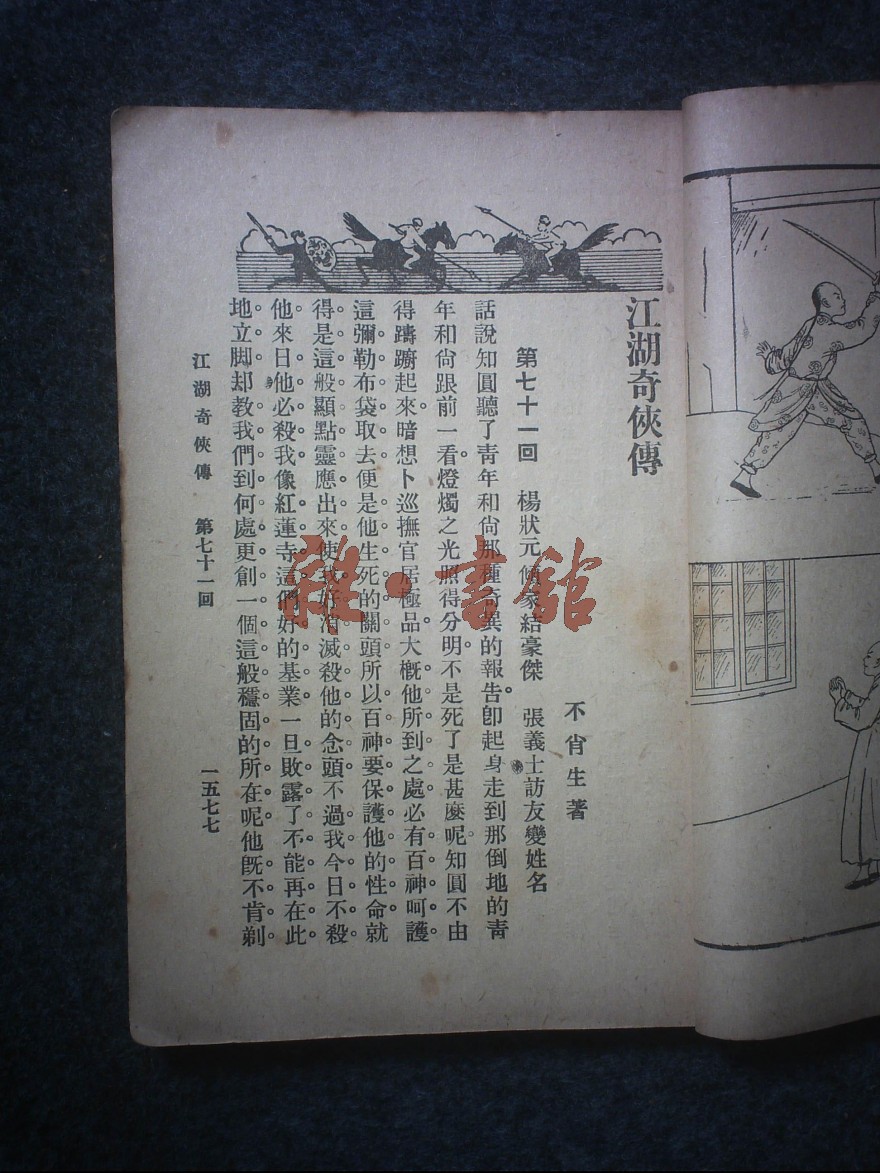 江湖奇俠傳
不肖生著
第七十一回 楊狀元傾家結豪傑 張義士訪友變姓名
話說知圓聽了靑年和尙那種奇異的報告。卽起身走到那倒地的靑
年和尙跟前一看燈燭之光照得分明不是死了是甚麼呢知圓不由
得躊躇起來暗想卜巡撫官居極品大槪他所到之處必有百神呵護
這彌勒布袋取去便是他生死的關頭所以百神要保護他的性命就
得是這般顯點靈應出來使我好消滅殺他的念頭不過我今日不殺
他來日他必殺我像紅蓮寺這們好的基業一旦敗露了不能再在此
地立脚却教我們到何處更創一個這般穩固的所在呢他旣不肯剃
江湖奇俠傳 第七十一回
一五七七
雜·書館